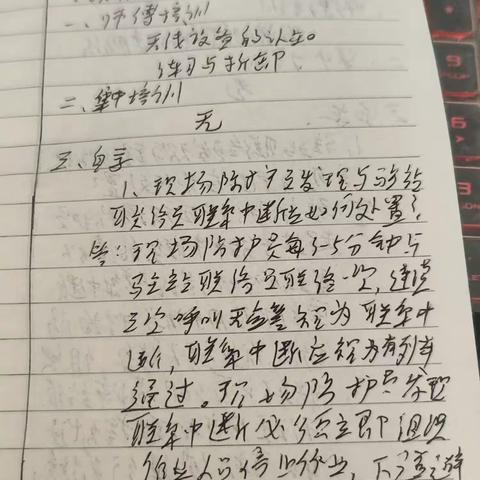 一、师傅培训
无线设备的认知。
练习与拆卸
二、集中培训
无
三、自学
1、现场防护员发现与驻站
联络员联系中断应如何处置？
答：现场防护员每3-5分钟与
驻站联络员联络一次，连续
三次呼叫无应答视为联系中
断，联系中断应视为有列车
通过。现场防护员发现
联系中断必须立即组织
作业人员停止作业，下道避